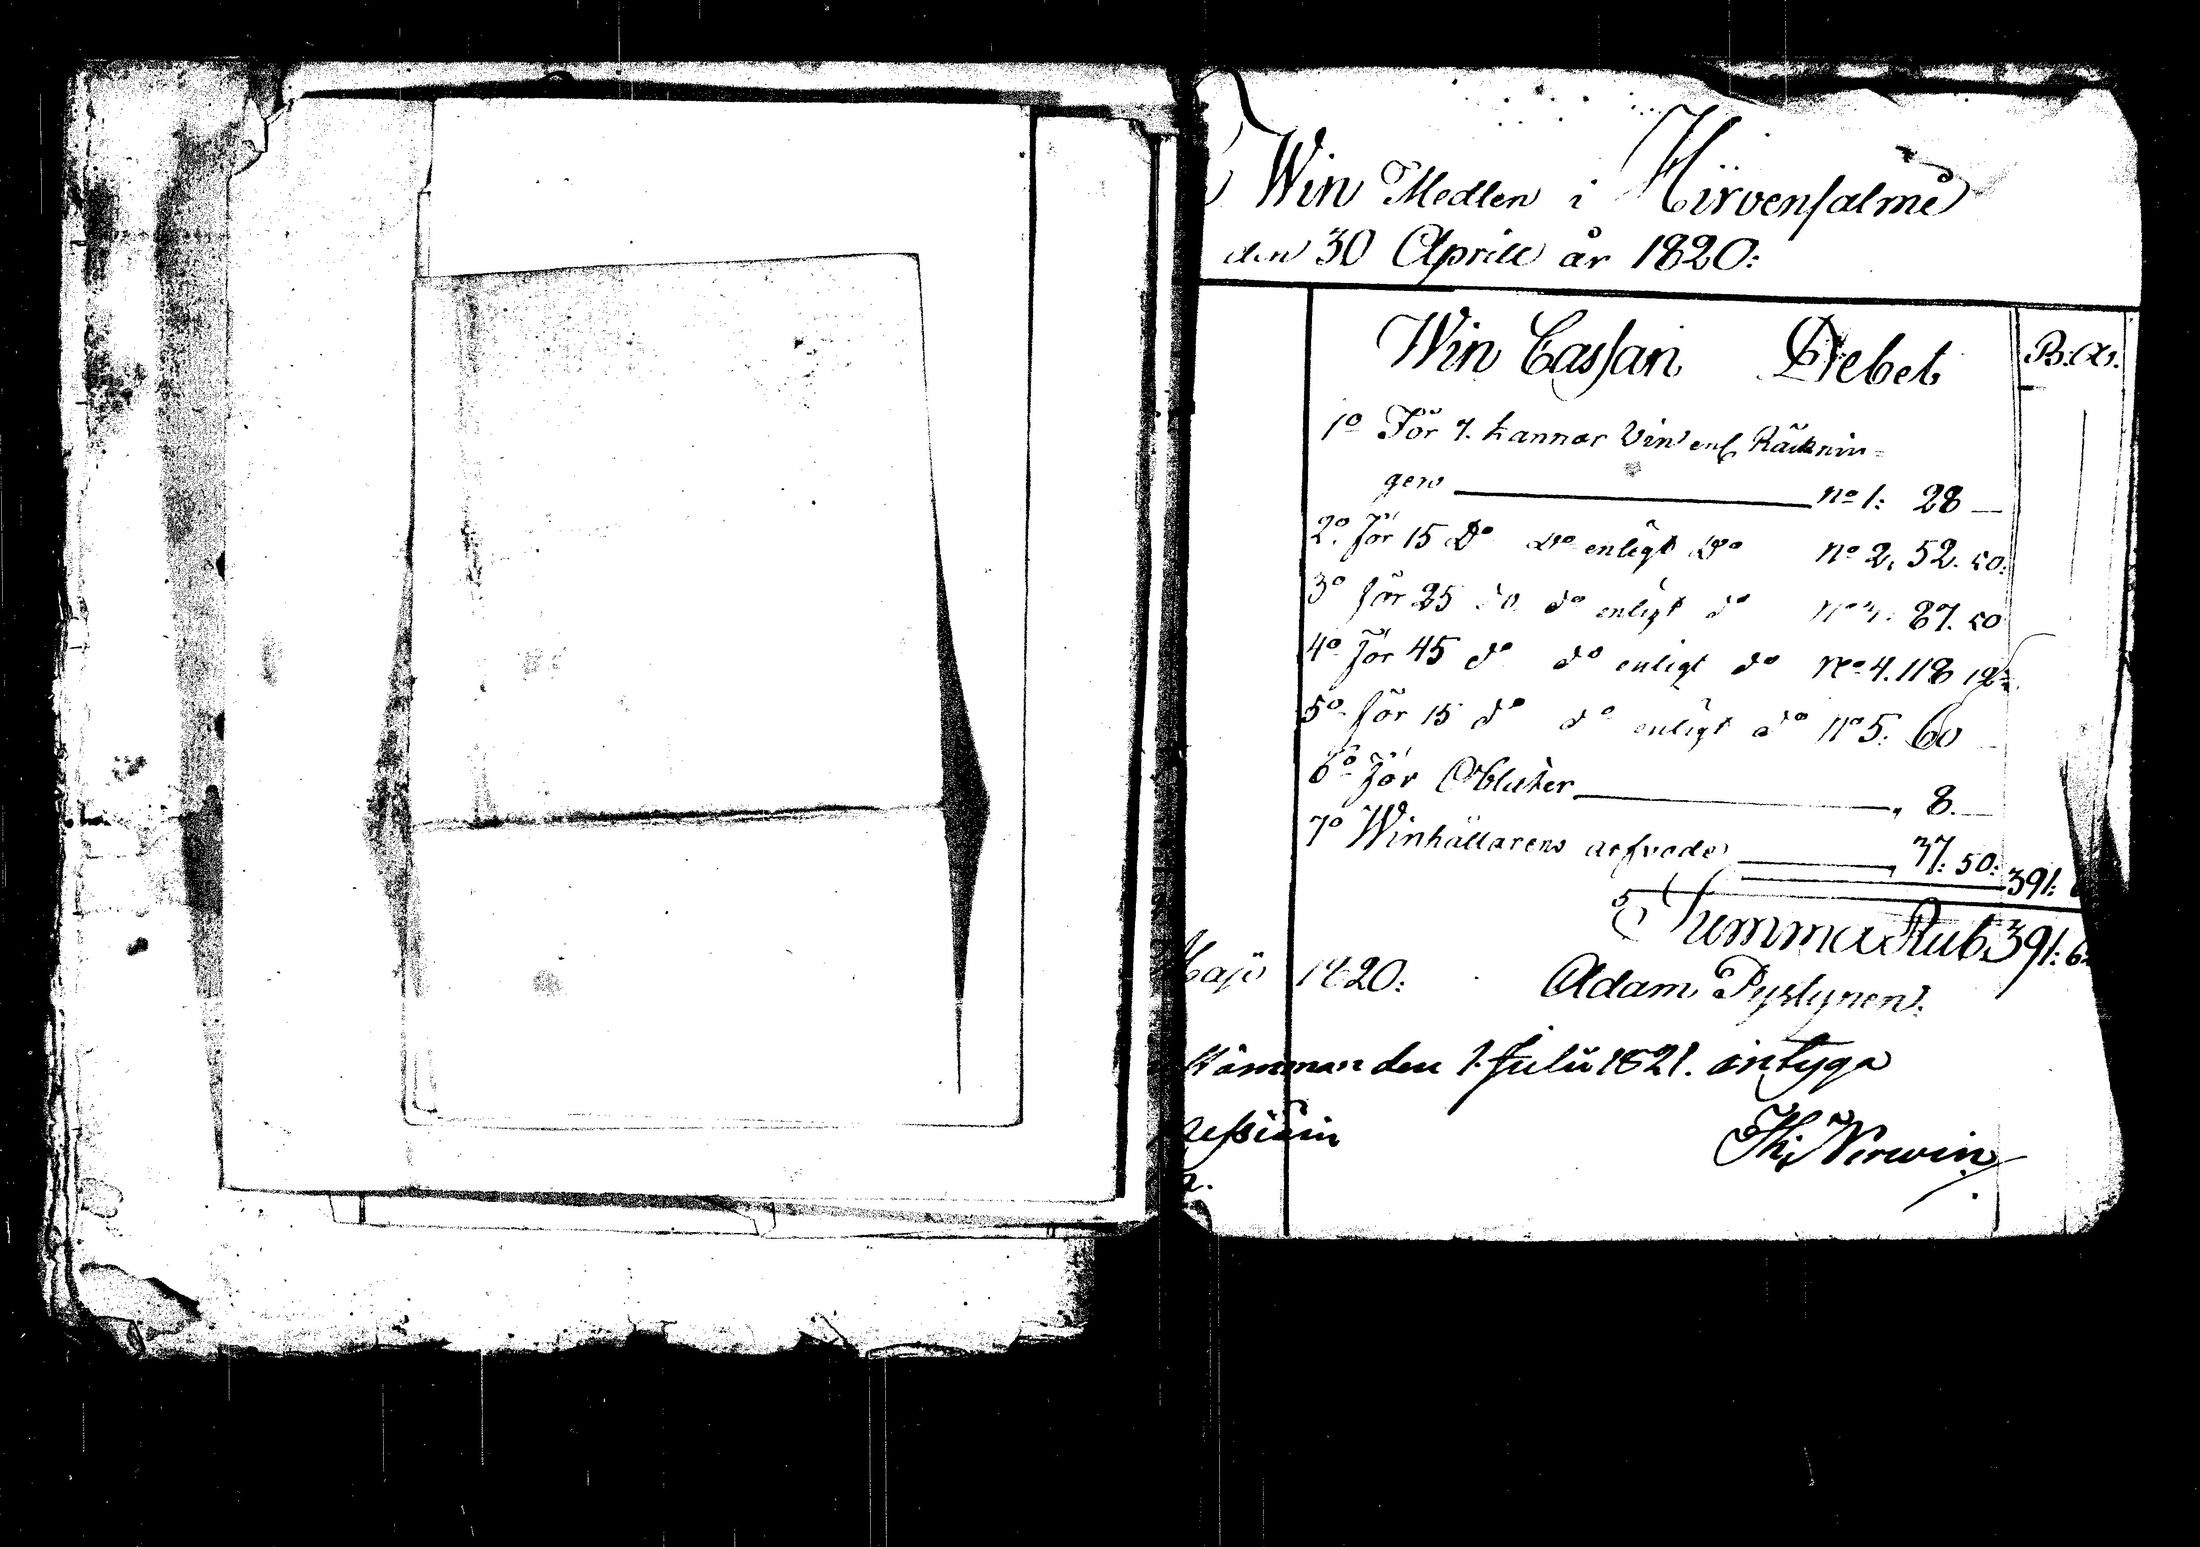 Win Medlen i Hirvensalmi
den 30 Aprill år 1820:
Win Cassan Debet B: A:
1º För 7. kannor Vin enl Räcknin-
gen nº 1: 28 —
2º. för 15 Dº Dº enligt Dº nº 2. 52. 50:
3º för 25 do. dº enligt dº nº 3. 87. 50
4º för 45 dº dº enligt dº nº 4. 118 12
5º för 15 dº dº enligt dº nº 5. 60
6º för Oblater „ 8. —
7º Winhållarens arfvode „ 37: 50: 391:
Summa Rub 391: 6
Maji 1820: Adam Pystynen.
stämman den 1. Julii 1821. intyga
Th: Nerwin